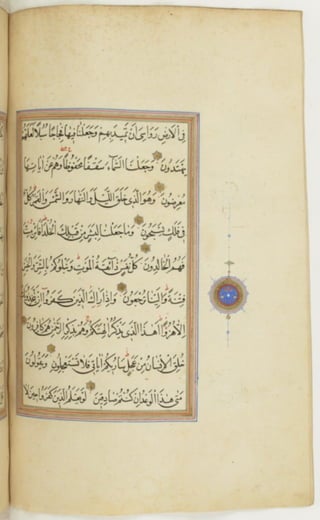 فِي الْأَرْضِ رَوَاسِيَ أَنْ تَمِيدَ بِهِمْ وَجَعَلْنَا فِيهَا فِجَاجًا سُبُلًا لَعَلَّهُمْ
يَهْتَدُونَ وَجَعَلْنَا السَّمَاءَ سَقْفًا مَحْفُوظًا وَهُمْ عَنْ آيَاتِهَا
مُعْرِضُونَ وَهُوَ الَّذِي خَلَقَ اللَّيْلَ وَالنَّهَارَ وَالشَّمْسَ وَالْقَمَرَ كُلٌّ
فِي فَلَكٍ يَسْبَحُونَ وَمَا جَعَلْنَا لِبَشَرٍ مِنْ قَبْلِكَ الْخُلْدَ أَفَإِنْ مِتَّ
فَهُمُ الْخَالِدُونَ كُلُّ نَفْسٍ ذَائِقَةُ الْمَوْتِ وَنَبْلُوكُمْ بِالشَّرِّ وَالْخَيْرِ
فِتْنَةً وَإِلَيْنَا تُرْجَعُونَ وَإِذَا رَآكَ الَّذِينَ كَفَرُوا إِنْ يَتَّخِذُونَكَ
إِلَّا هُزُوًا أَهَذَا الَّذِي يَذْكُرُ آلِهَتَكُمْ وَهُمْ بِذِكْرِ الرَّحْمَنِ هُمْ كَافِرُونَ
خُلِقَ الْإِنْسَانُ مِنْ عَجَلٍ سَأُرِيكُمْ آيَاتِي فَلَا تَسْتَعْجِلُونِ وَيَقُولُونَ
مَتَى هَذَا الْوَعْدُ إِنْ كُنْتُمْ صَادِقِينَ لَوْ يَعْلَمُ الَّذِينَ كَفَرُوا حِينَ لَا